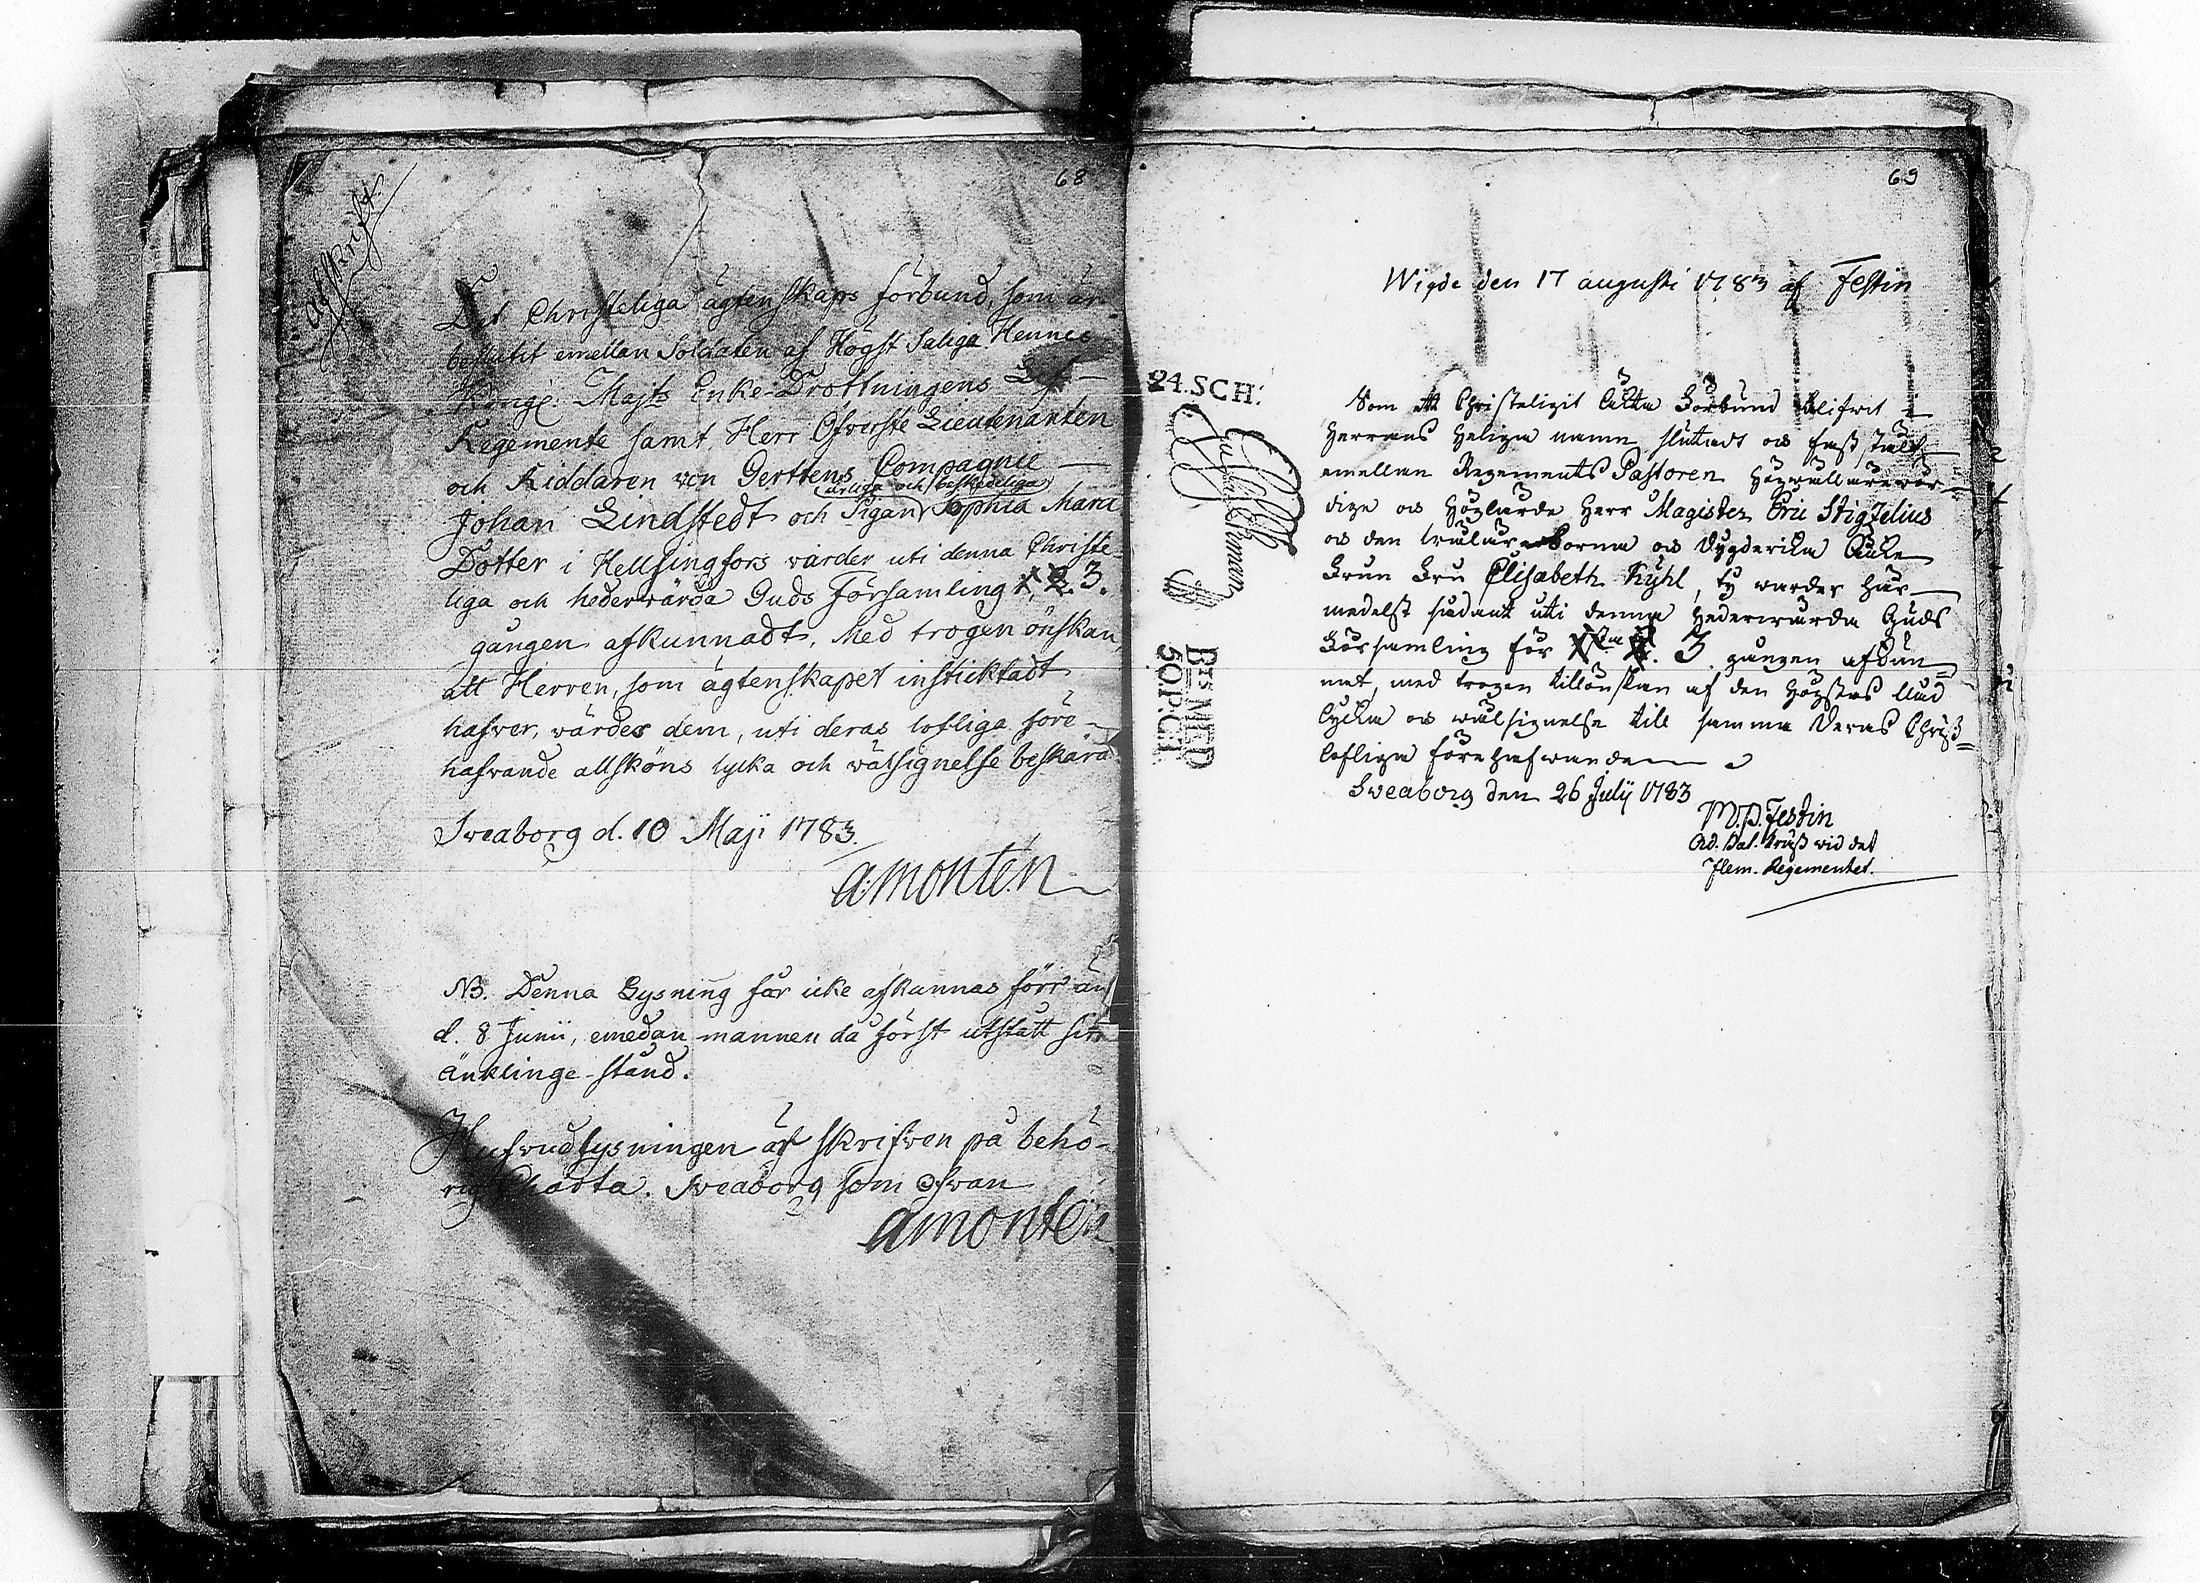 68
afskrift
Det Christeliga ägtenskaps förbund, som är
beslutit emellan Soldaten af Högst Saliga Hennes
Kongl. Majts Enke-Drottningens Lif-
Regemente samt Herr Öfverste Lieutenanten
och Riddaren von Gerttens Compagnie
ärliga och beskedeliga
Johan Lindstedt och Pigan Sophia Mari
Dotter i Hellsingfors varder uti denna Christe-
liga och hedervärda Guds Församling 1, 2. 3.
gången afkunnadt. Med trogen önskan,
att Herren, som ägtenskapet insticktadt
hafver, värdes dem, uti deras lofliga före-
hafvande allsköns lycka och välsignelse beskära
Sveaborg d. 10 Maji 1783.
Amonten
NB. Denna Lysning får icke afkunnas förr än
d. 8 Junii, emedan mannen då först utstått sitt
änklinge-stånd.
Hufvudlysningen är skrifven på behö-
rig Charta. Sveaborg som ofvan
Amonten
69
Wigde den 17 augusti 1783 af Festin
24. SCH:
BtsMED
5 OP: Ct
Som ett Christeligit Äkta Förbund blifvit i
Herrans Heliga namn slutadt och fastställt
emellan Regements Pastoren Högvällärevör-
dige och Höglärde Herr Magister Eric Stigzelius
och den ärborna och Dygderika Enke
Frun Fru Elisabeth Kyhl, ty warder här-
medelst sådant uti denna Hedervärda Guds
Församling för 3 gången afkun-
nat, med trogen tillönskan af den Högstes Nåd
lycka och wälsignelse till samma Deras Christ-
lofliga förehafwande
Sveaborg den 26 Julij 1783
M. P. Festin
Ad. Bat. Präst vid det
Jlem. Regementet.